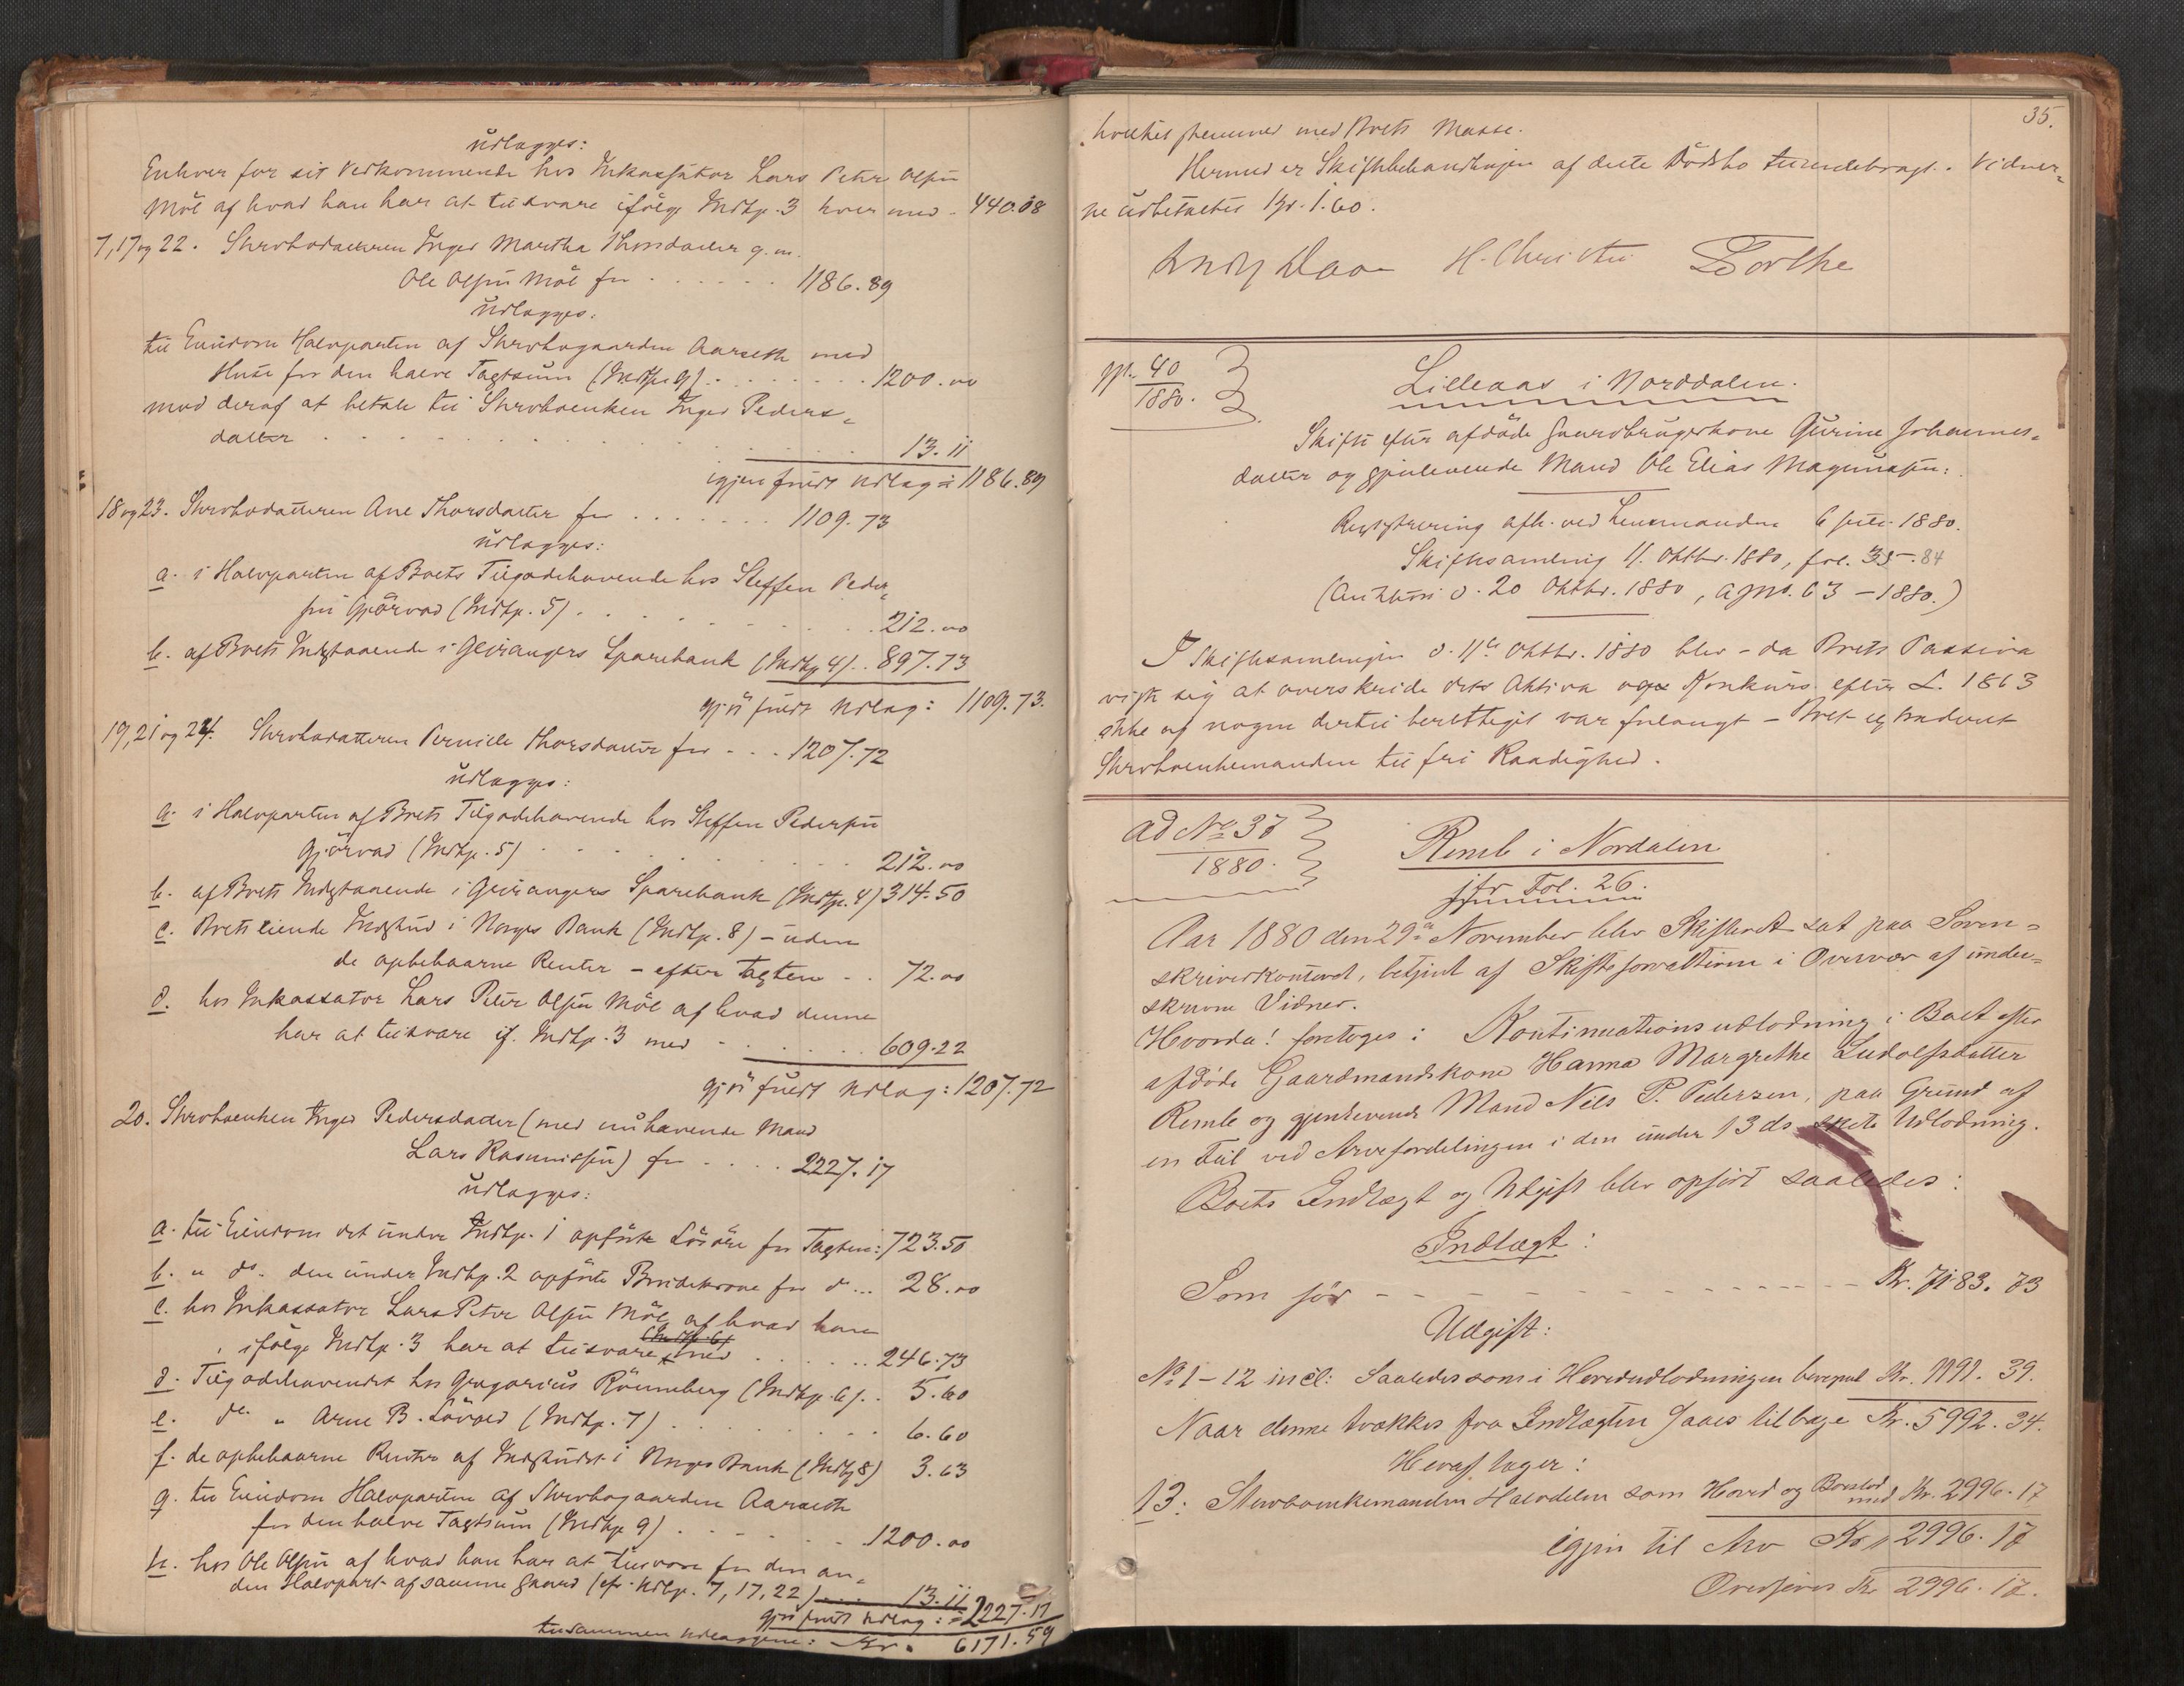 udlægges:
Enhver for sit Vedkommende hos Inkassator Lars Peter Olsen
Möl af hvad han har at tilsvare ifölge Indtp. 3 hver med - 440.08
7, 17 og 22. Stervbodatteren Inger Martha Thorsdatter g. m.
Ole Olsen Möl for . . . . . . 1186.89
udlægges:
til Eiendom Halvparten af Stervbogaarden Aarseth med
Huse for den halve Taxtsum (Indtp. 9) . . . . . . . 1200.00
mod deraf at betale til Stervboenken Inger Peders-
datter . . . . . . . . . . 13.11
igjen fuldt Udlæg = 1186.89
18 og 23. Stervbodatteren Ane Thorsdatter for . . . . . . . 1109.73
udlægges:
a. i Halvparten af Boets Tilgodehavende hos Steffen Peder-
sen Gjörvad (Indtp. 5) . . . . . . . . . 212.00
b. af Boets Indestaaende i Geirangers Sparebank (Indtp 4) . . 897.73
gjör fuldt Udlæg: 1109.73.
19, 21 og 24. Stervbodatteren Pernille Thorsdatter for - . . 1207.72
udlægges:
a. i Halvparten af Boets Tilgodehavende hos Steffen Pedersen
Gjörvad (Indtp. 5) . . . . . . . . . 212.00
b. af Boets Indestaaende i Geirangers Sparebank (Indtp. 4) 314.50
c. Boets eiende Indskud i Norges Bank (Indtp. 8) - uden
de ophebaarne Renter - efter Taxten - . . 72.00
d. hos Inkassator Lars Peter Olsen Möl af hvad denne
har at tilsvare if. Indtp. 3 med - . . . . . . 609.22
gjör fuldt Udlæg: 1207.72
20. Stervboenken Inger Pedersdatter (med nuhavende Mand
Lars Rasmussen) for . . . . 2227.17
udlægges:
a. til Eiendom det under Indtp. 1 opförte Lösöre for Taxten: 723.50
b. " do. den under Indtp. 2 opförte Brudekrone for do ... 28.00
c. hos Inkassator Lars Peter Olsen Möl af hvad han
ifölge Indtp. 3 har at tilsvare med . . . . . . 246.73
d. Tilgodehavendet hos Gregorius Rönneberg (Indtp. 6) . . 5.60
e. do. " Arne B. Lövoll (Indtp. 7) . . . . . . . . 6.60
f. de ophebaarne Renter af Indskudet i Norges Bank (Indtp 8) 3.63
g. til Eiendom Halvparten af Stervbogaarden Aarseth
for den halve Taxtsum (Indtp 9) . . . . . . . 1200.00
h. hos Ole Olsen af hvad han har at tilsvare for den an-
den Halvpart af samme Gaard (cfr. Udtp. 7, 17, 22) . . . 13.11
gjör fuldt Udlæg: = 2227.17
tilsammen udlæggene: Kr. 6171.59
35.
hvilket stemmer med Boets Masse.
Hermed er Skiftebehandlingen af dette Dödsbo tilendebragt. Vidner-
ne udbetaltes Kr. 1.60.
Daae H. Christie
No. 40
1880.
Lilleaas i Norddalen.
Skifte efter afdöde Gaardbrugerkone Gurine Johannes-
datter og gjenlevende Mand Ole Elias Magnussen:
Registrering afh. ved Lensmanden 6 Juli 1880.
Skiftesamling 11. Oktbr. 1880, fol. 35-84
( d. 20 Oktbr. 1880, 63 - 1880.)
I Skiftesamlingen d. 11te Oktbr. 1880 blev - da Boets Passiva
viste sig at overskride dets Aktiva og Konkurs efter L. 1863
ikke af nogen dertil berettiget var forlangt - Boet extraderet
Stervboenkemanden til fri Raadighed.
ad No 37
1880.
Remb i Nordalen
jfr Fol. 26.
Aar 1880 den 29de November blev Skifteret sat paa Soren-
skriverkontoret, betjent af Skifteforvalteren i Overvær af under-
skrevne Vidner.
Hvorda! foretoges: Kontinuationsudlodning i Boet efter
afdöde Gaardmandskone Hanna Margrethe Ludolfsdatter
Remb og gjenlevende Mand Nils P. Pedersen, paa Grund af
en Feil ved Arvefordelingen i den under 13 ds skete Udlodning.
Boets Indtægt og Udgift blev opfört saaledes:
Indtægt:
Som för - - - - - - - - - - - - - Kr. 7183.73
Udgift:
No 1-12 incl: Saaledes som i Hovedudlodningen beregnet Kr. 1191.39.
Naar denne trækkes fra Indtægten haves tilbage Kr. 5992.34.
Heraf tager:
13: Stervboenkemanden Halvdelen som Hoved og Boeslod med Kr. 2996.17
igjen til Arv Kr 2996.17
Overföres Kr 2996.17.